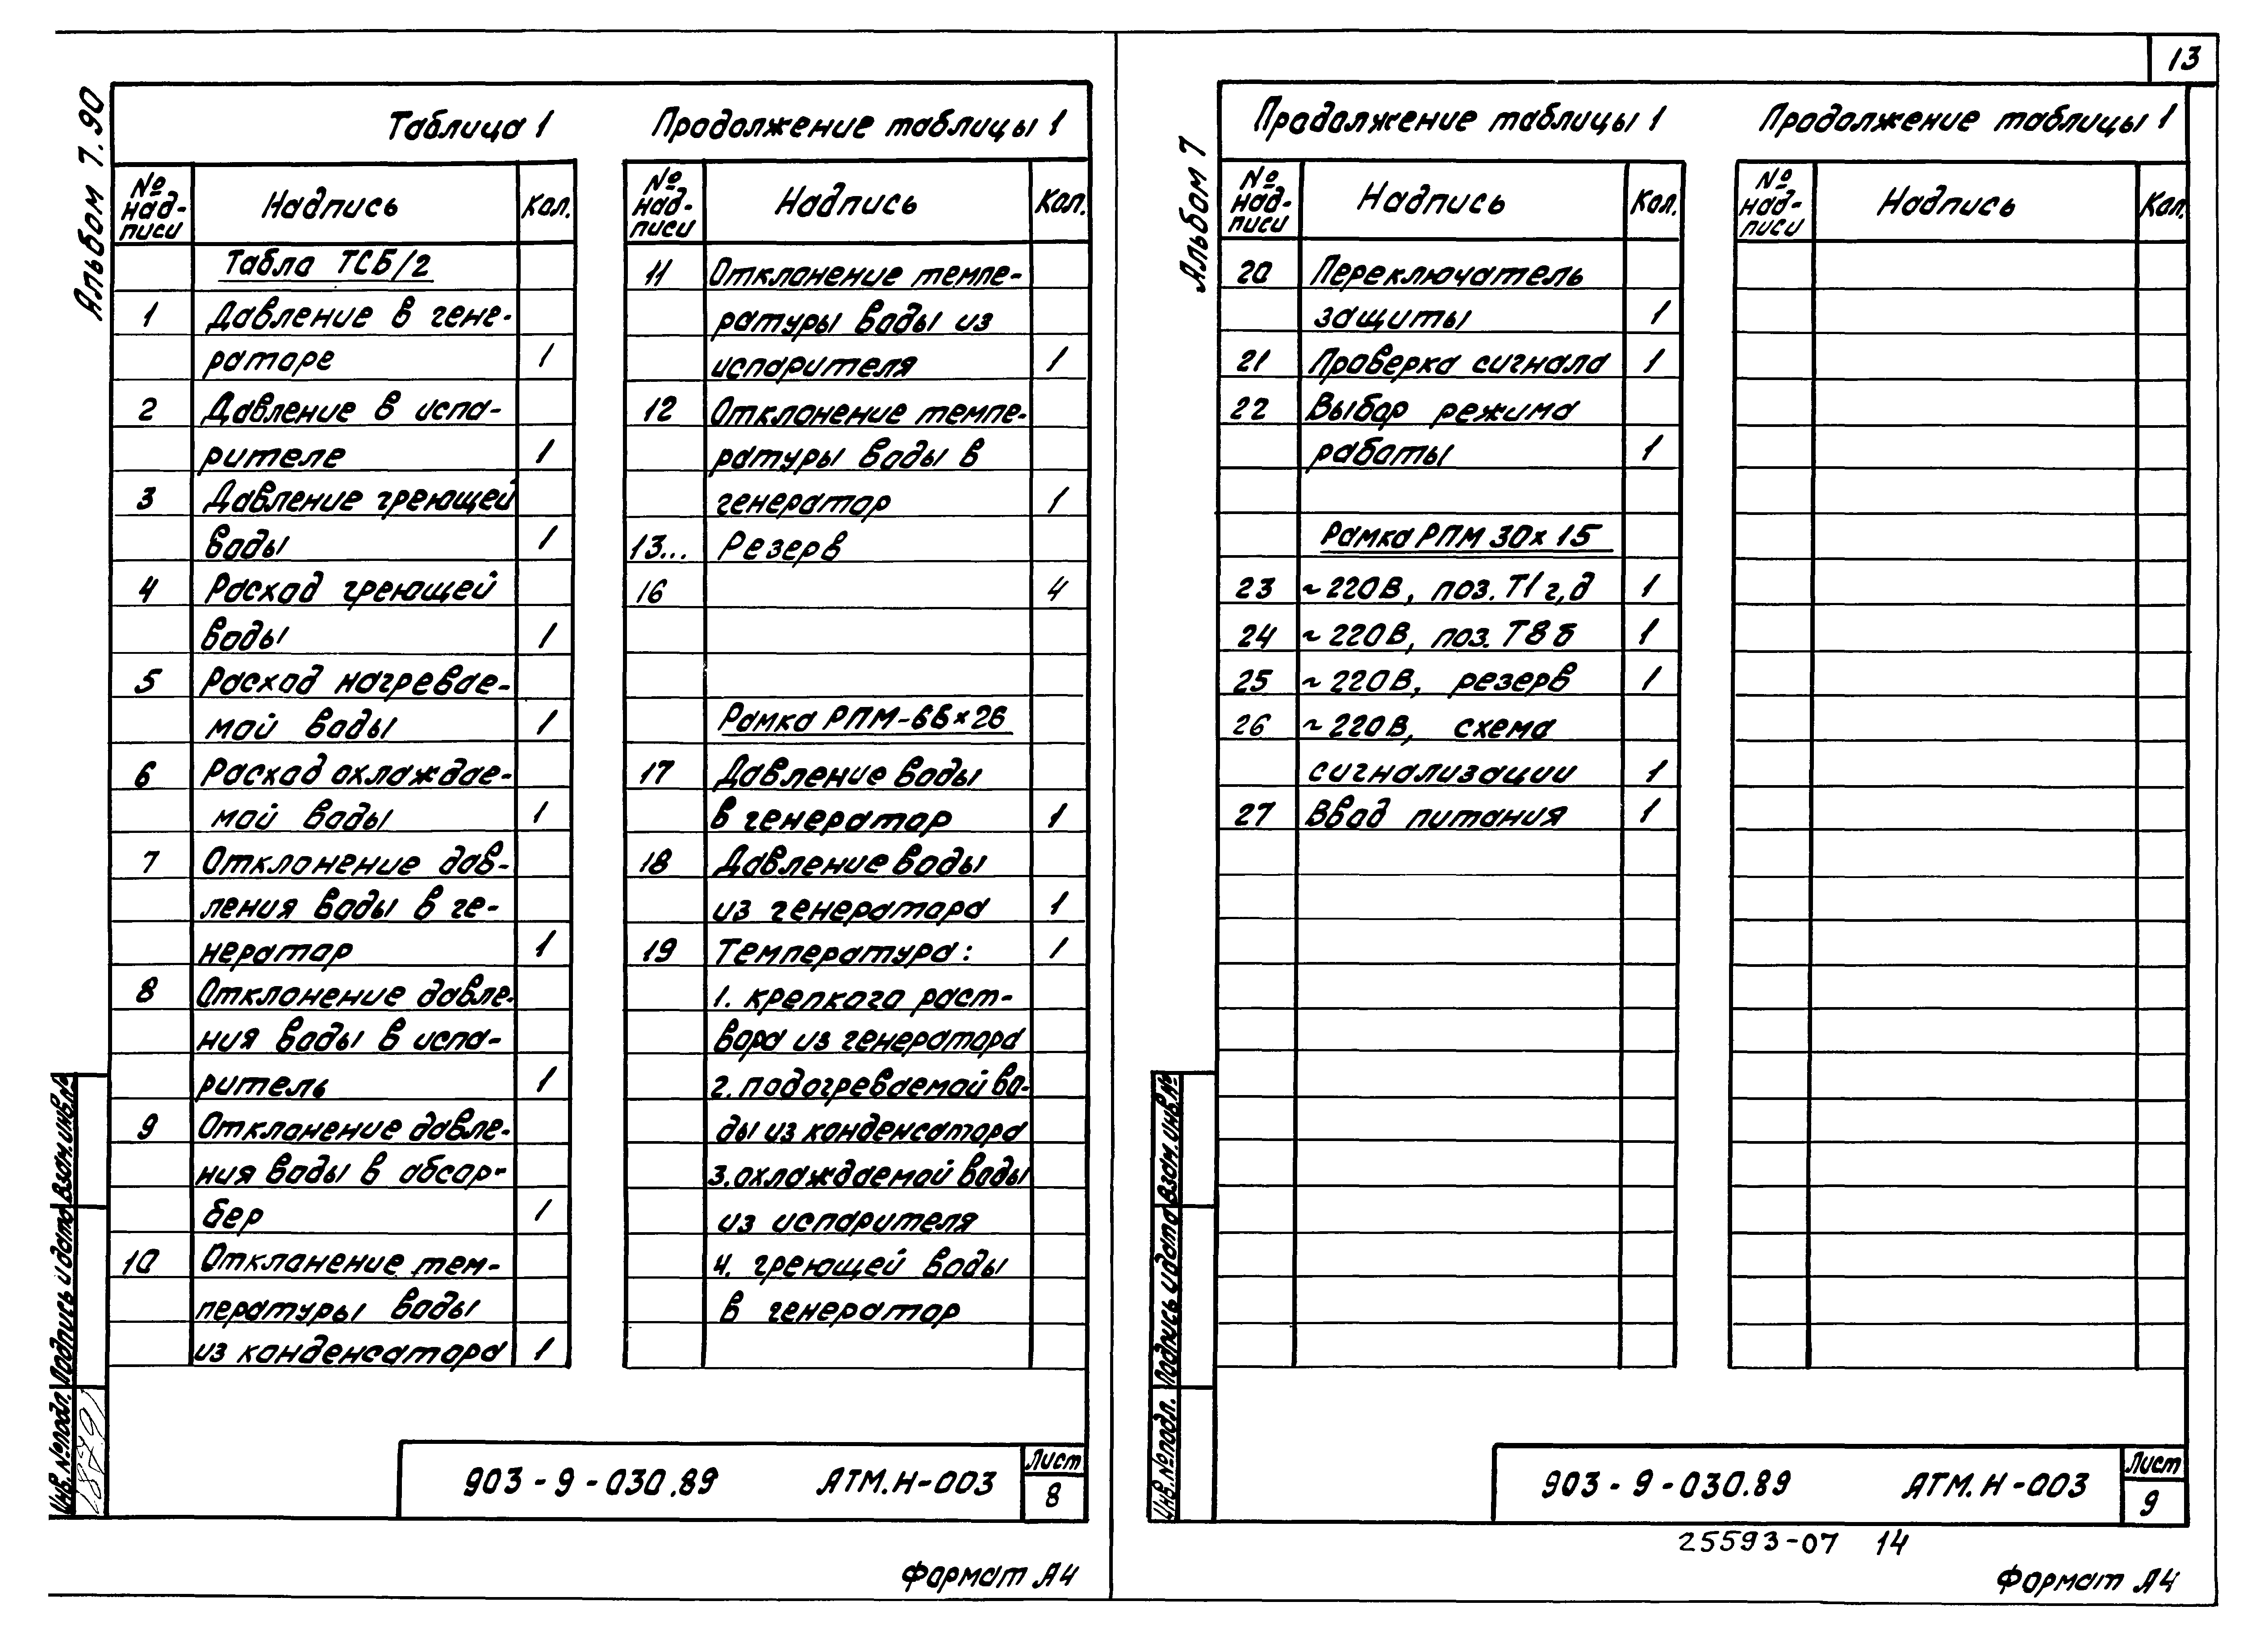 13
Альбом 7.90
Таблица 1
№ над-писи Надпись Кол.
Табло ТСБ/2
1 Давление в гене-
раторе 1
2 Давление в испа-
рителе 1
3 Давление греющей
воды 1
4 Расход греющей
воды 1
5 Расход нагревае-
мой воды 1
6 Расход охлаждае-
мой воды 1
7 Отклонение дав-
ления воды в ге-
нератор 1
8 Отклонение давле-
ния воды в испа-
ритель 1
9 Отклонение давле-
ния воды в абсор-
бер 1
10 Отклонение тем-
пературы воды
из конденсатора 1
Продолжение таблицы 1
№ над-писи Надпись Кол.
11 Отклонение темпе-
ратуры воды из
испарителя 1
12 Отклонение темпе-
ратуры воды в
генератор 1
13... Резерв
16 4
Рамка РПМ-66×26
17 Давление воды
в генератор 1
18 Давление воды
из генератора 1
19 Температура: 1
1. крепкого раст-
вора из генератора
2. подогреваемой во-
ды из конденсатора
3. охлаждаемой воды
из испарителя
4. греющей воды
в генератор
Инв. № подл. Подпись и дата Взам. инв. №
903-9-030.89 АТМ.Н-003 Лист
8
Формат А4
Альбом 7
Продолжение таблицы 1
№ над-писи Надпись Кол.
20 Переключатель
защиты 1
21 Проверка сигнала 1
22 Выбор режима
работы 1
Рамка РПМ 30×15
23 ~220В, поз. Т1г,д 1
24 ~220В, поз. Т8б 1
25 ~220В, резерв 1
26 ~220В, схема
сигнализации 1
27 Ввод питания 1
Продолжение таблицы 1
№ над-писи Надпись Кол.
Инв. № подл. Подпись и дата Взам. инв. №
903-9-030.89 АТМ.Н-003 Лист
9
25593-07 14
Формат А4